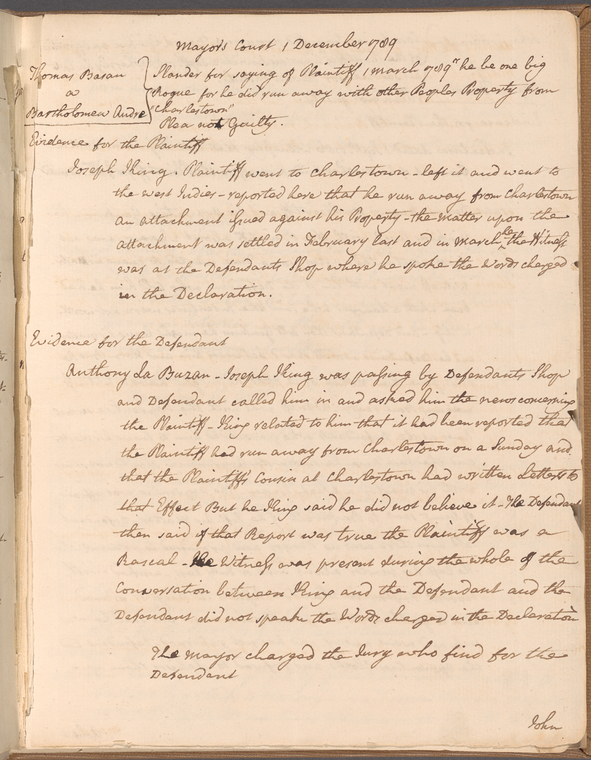 Mayors Court 1 December 1789
Thomas Basan
a
Bartholomew Andre
Slander for saying of Plaintiff 1 March 1789 "he be one big
Rogue for he did run away with other Peoples Property from
Charlestown"
Plea not Guilty.
Evidence for the Plaintiff
Joseph King. Plaintiff went to Charlestown - left it and went to
the west Indies - reported here that he run away from Charlestown
an attachment issued against his Property - the matter upon the
attachment was settled in February last and in March he the Witness
was at the Defendants Shop where he spoke the Words charged
in the Declaration.
Evidence for the Defendant
Anthony La Buzan - Joseph King was passing by Defendants Shop
and Defendant called him in and asked him the news concerning
the Plaintiff - King related to him that it had been reported that
the Plaintiff had run away from Charlestown on a Sunday and
that the Plaintiffs Cousin at Charlestown had written Letters to
that Effect But he King said he did not believe it - The Defendant
then said if that Report was true the Plaintiff was a
Rascal - The Witness was present during the whole of the
Conversation between King and the Defendant and the
Defendant did not speak the Words charged in the Declaration
The Mayor charged the Jury who find for the
Defendant
John